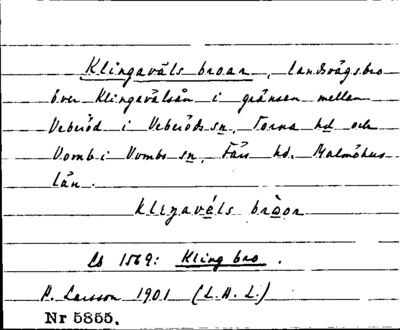 Klingaväls broar, landsvägsbro
över Klingavälsån i gränsen mellan
Veberöd i Veberöds sn, Torna hd och
Vomb i Vombs sn, Färs hd. Malmöhus
län.
Klɪŋavéls bròor
1569: Kling bro.
P. Larsson 1901 (L.A.L.)
Nr 5855.